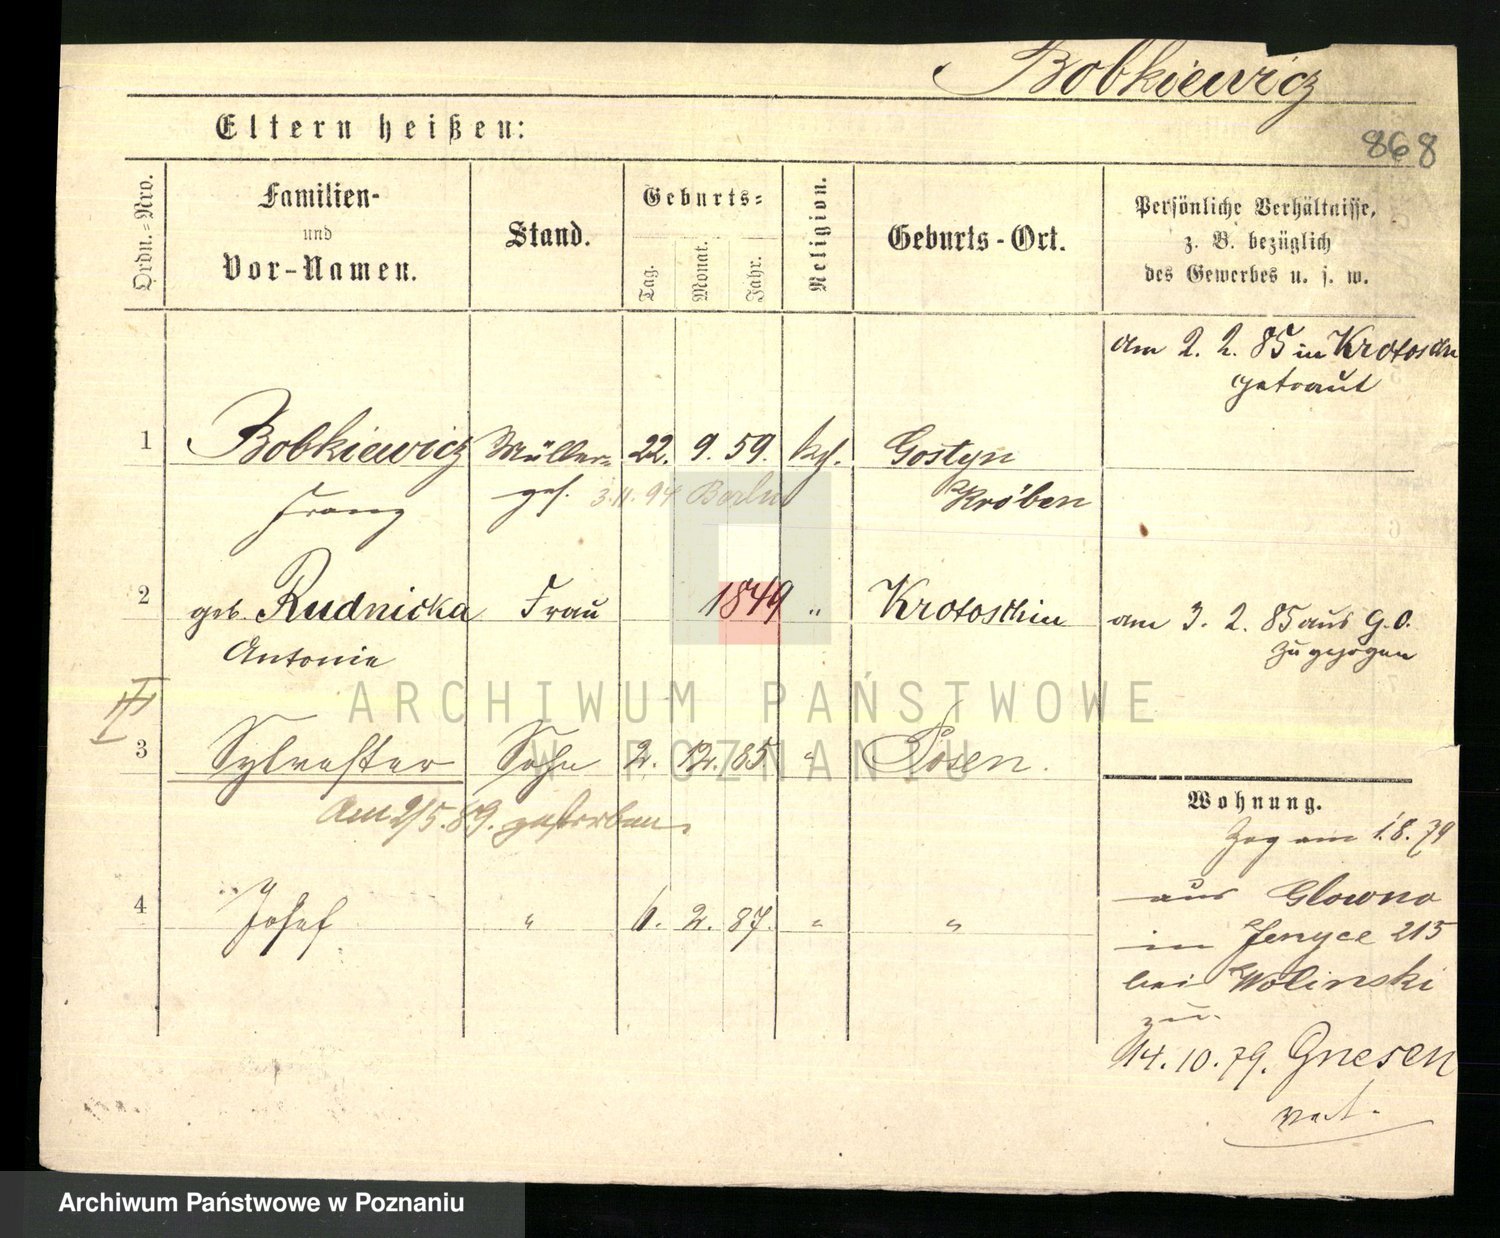 Bobkiewicz
868
Eltern heißen:
Ordn.=Nro.
Familien-
und
Vor-Namen.
Stand.
Geburts=
Tag.
Monat.
Jahr.
Religion.
Geburts-Ort.
Persönliche Verhältnisse,
z. B. bezüglich
des Gewerbes u. s. w.
am 2. 2. 85 in Krotoschin
getraut
1 Bobkiewicz Müller= 22. 9. 59. kg. Gostyn
Franz ges. 3.11.94 Berlin Kröben
2 geb. Rudnicka Frau 1849 " Krotoschin am 3. 2. 85 aus G.O.
Antonie zugezogen
III
3 Sylvester Sohn 2. 12. 85 " Posen.
Am 2/5. 89. gestorben.
Wohnung.
Zog am 1.8.79
4 Josef " 6. 2. 87. " "
aus Glowno
in Jenyce 215
bei Wolinski
zu.
14.10.79. Gnesen
ARCHIWUM PAŃSTWOWE
W POZNANIU
Archiwum Państwowe w Poznaniu